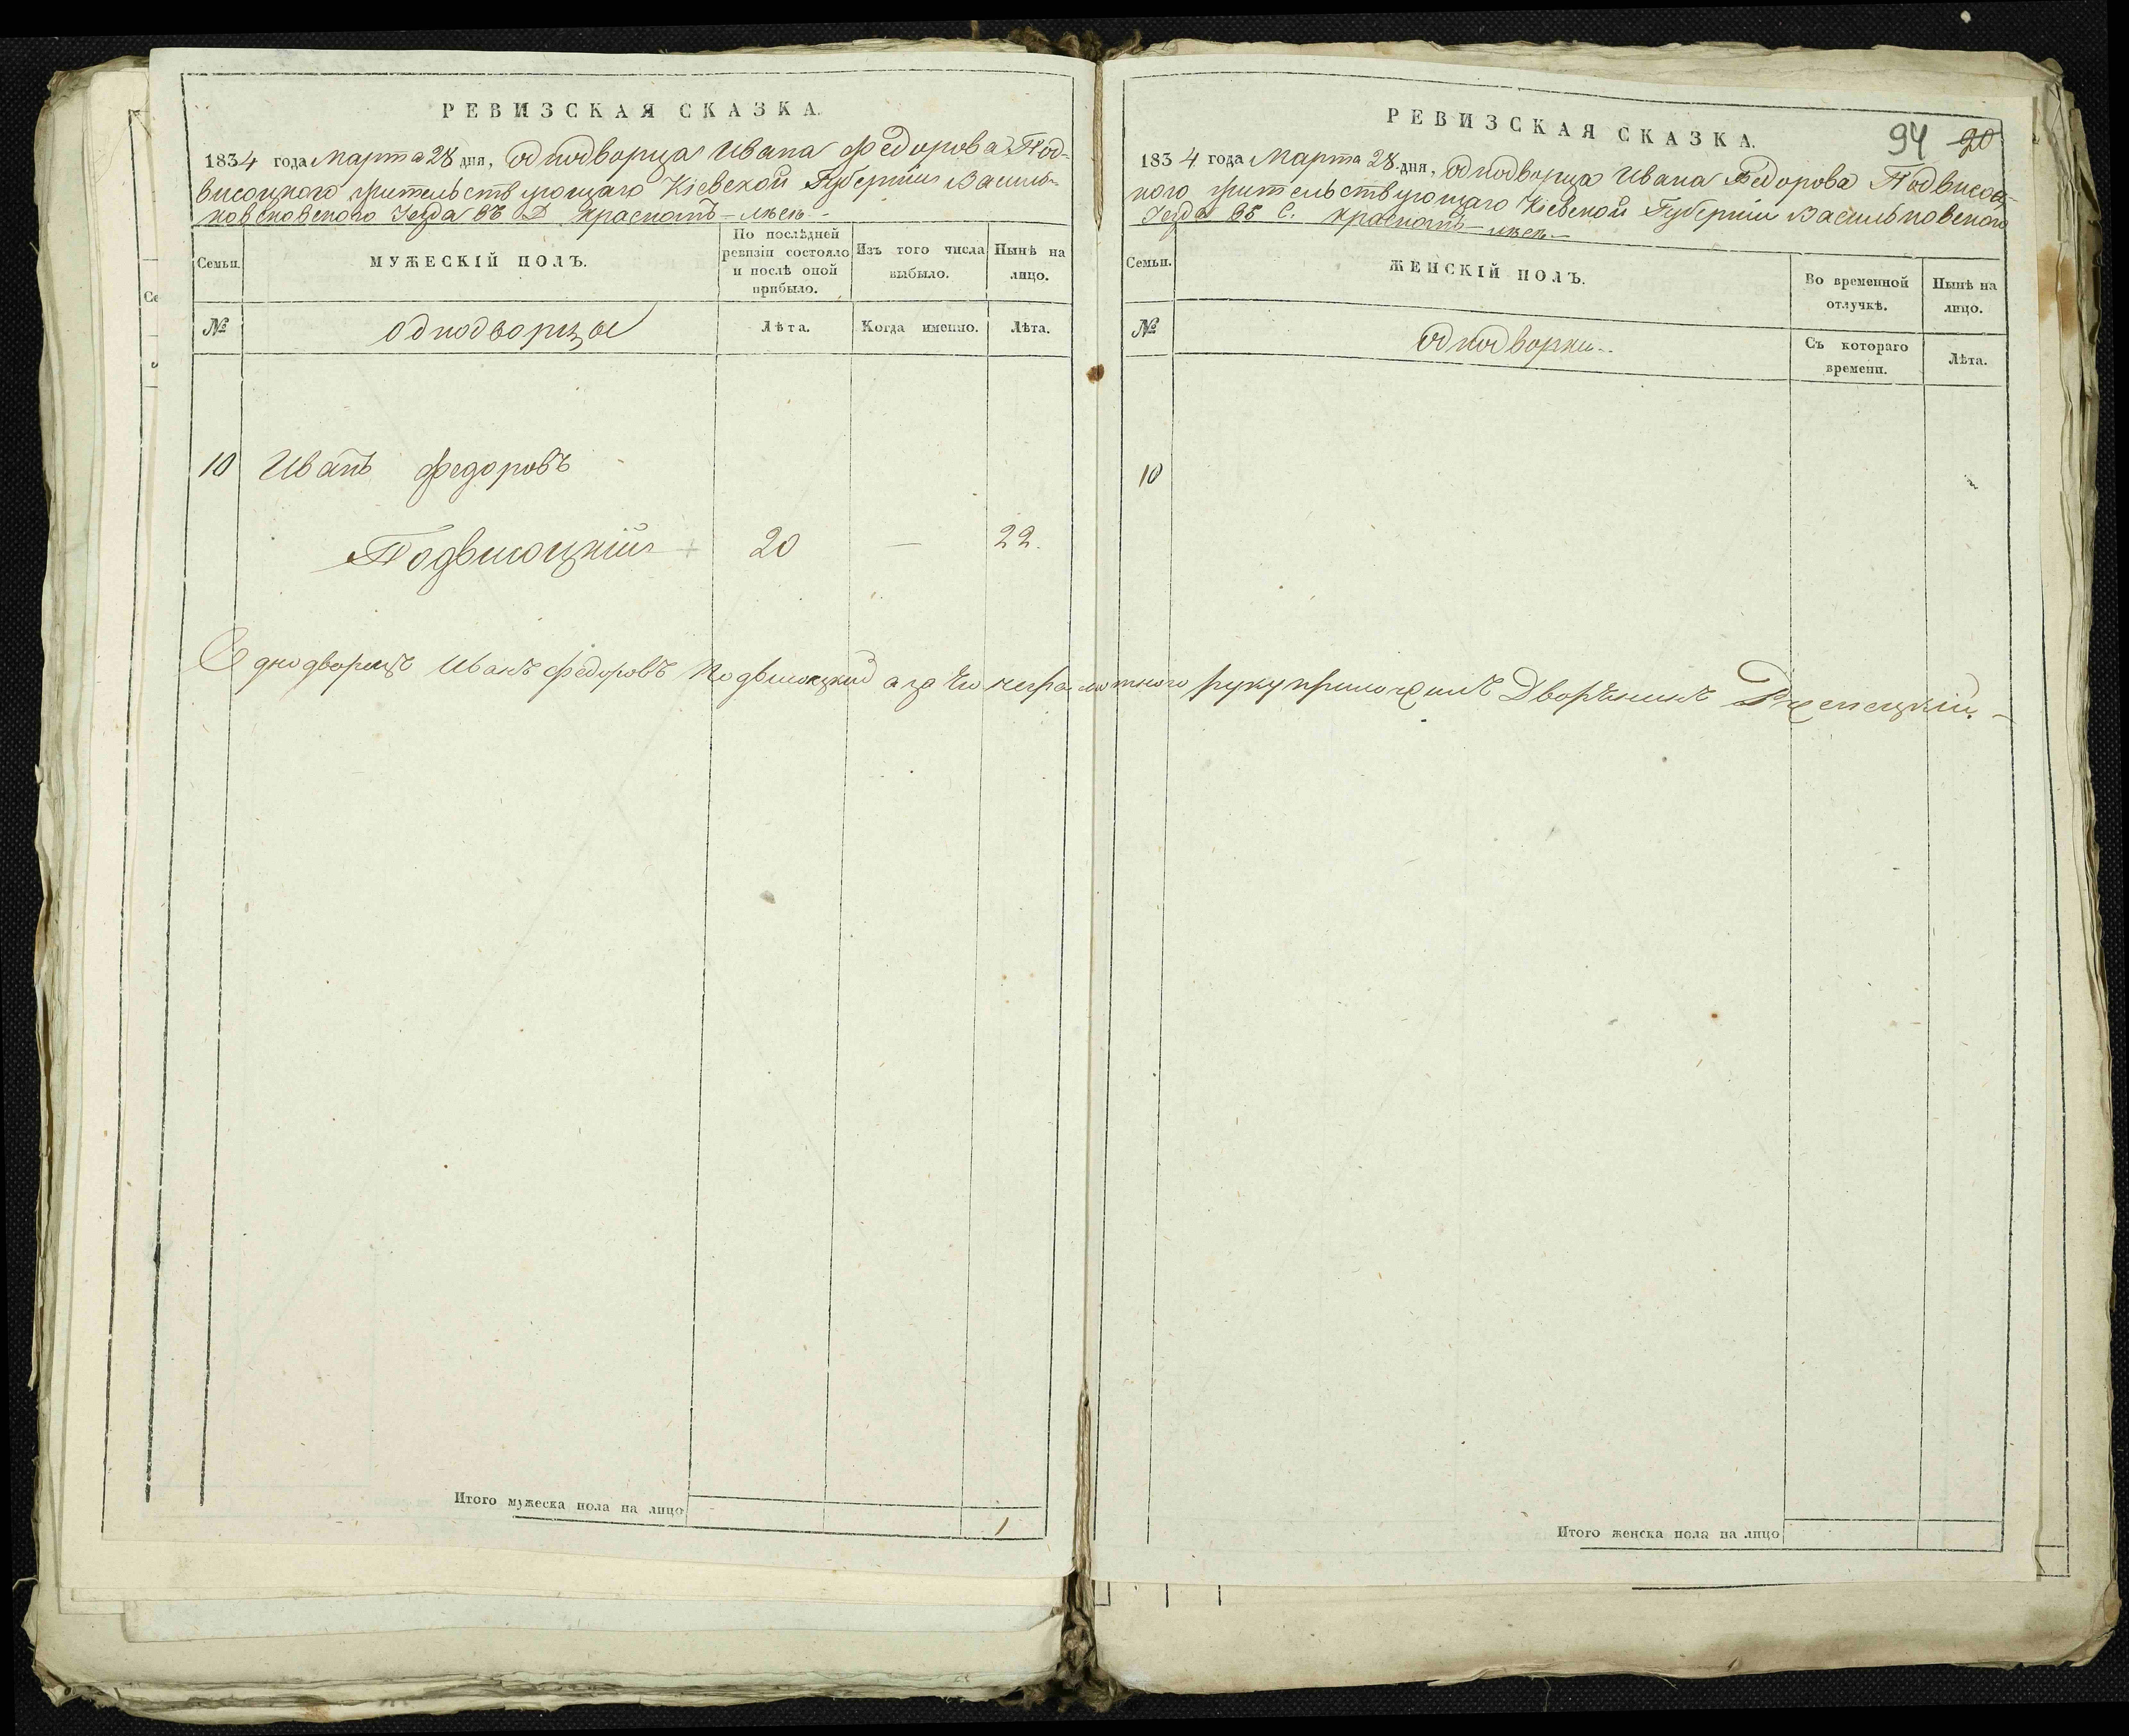 РЕВИЗСКАЯ СКАЗКА.
1834 года Марта 28 дня, Однодворца Ивана Федорова Под-
висоцкого жительствующаго Кіевской Губерніи Василь-
ковского Уезда въ Д
По послѣдней
ревизіи состояло
и послѣ оной
прибыло.
Изъ того числа
выбыло.
Нынѣ на
лицо.
Семьи.
МУЖЕСКІЙ ПОЛЪ.
№
однодворцы
Лѣта.
Когда именно.
Лѣта.
10 Иванъ Федоровъ
Подвисоцкий 20 — 22.
Однодворецъ Иванъ Федоровъ Подвисоцкий а за его неграмотного руку приложилъ Дворянинъ
Итого мужеска пола на лицо
1
РЕВИЗСКАЯ СКАЗКА.
94 20
1834 года Марта 28 дня, Однодворца Ивана Федорова Подвисоц-
кого жительствующаго Кіевской Губерніи Васильковского
Уезда въ С.
Семьи.
ЖЕНСКІЙ ПОЛЪ.
Во временной
отлучкѣ.
Нынѣ на
лицо.
№
Однодворки
Съ котораго
времени.
Лѣта.
10
Итого женска пола на лицо